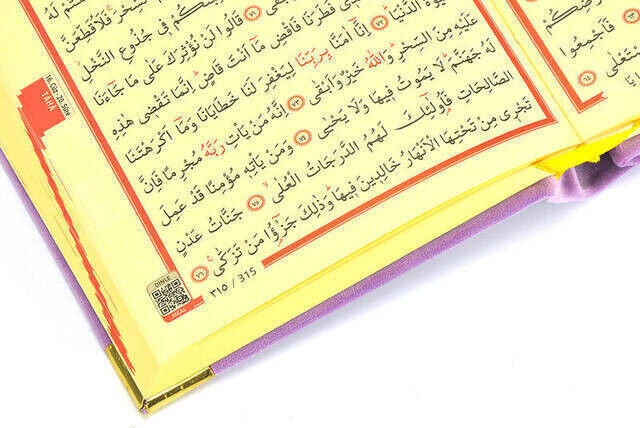 السِّحْرَ فَلَاُقَطِّعَنَّ
فٖي جُذُوعِ النَّخْلِ
﴿٧١﴾ قَالُوا لَنْ نُؤْثِرَكَ عَلٰى مَا جَٓاءَنَا
فَطَرَنَا فَاقْضِ مَٓا اَنْتَ قَاضٍ اِنَّمَا تَقْضٖي هٰذِهِ
الدُّنْيَا ﴿٧٢﴾ اِنَّٓا اٰمَنَّا بِرَبِّنَا لِيَغْفِرَ لَنَا خَطَايَانَا وَمَٓا اَكْرَهْتَنَا
عَلَيْهِ مِنَ السِّحْرِ وَاللّٰهُ خَيْرٌ وَاَبْقٰى ﴿٧٣﴾ اِنَّهُ مَنْ يَاْتِ رَبَّهُ مُجْرِمًا فَاِنَّ
لَهُ جَهَنَّمَ لَا يَمُوتُ فٖيهَا وَلَا يَحْيٰى ﴿٧٤﴾ وَمَنْ يَاْتِهٖ مُؤْمِنًا قَدْ عَمِلَ
الصَّالِحَاتِ فَاُولٰٓئِكَ لَهُمُ الدَّرَجَاتُ الْعُلٰى ﴿٧٥﴾ جَنَّاتُ عَدْنٍ
تَجْرٖي مِنْ تَحْتِهَا الْاَنْهَارُ خَالِدٖينَ فٖيهَا وَذٰلِكَ جَزٰٓؤُا مَنْ تَزَكّٰى ﴿٧٦﴾
٣١٥ / 315
DİNLE
MEAL
16. Cüz - 20. Sûre
TÂHÂ
فَاَجْمِعُوا
﴿٦٤﴾